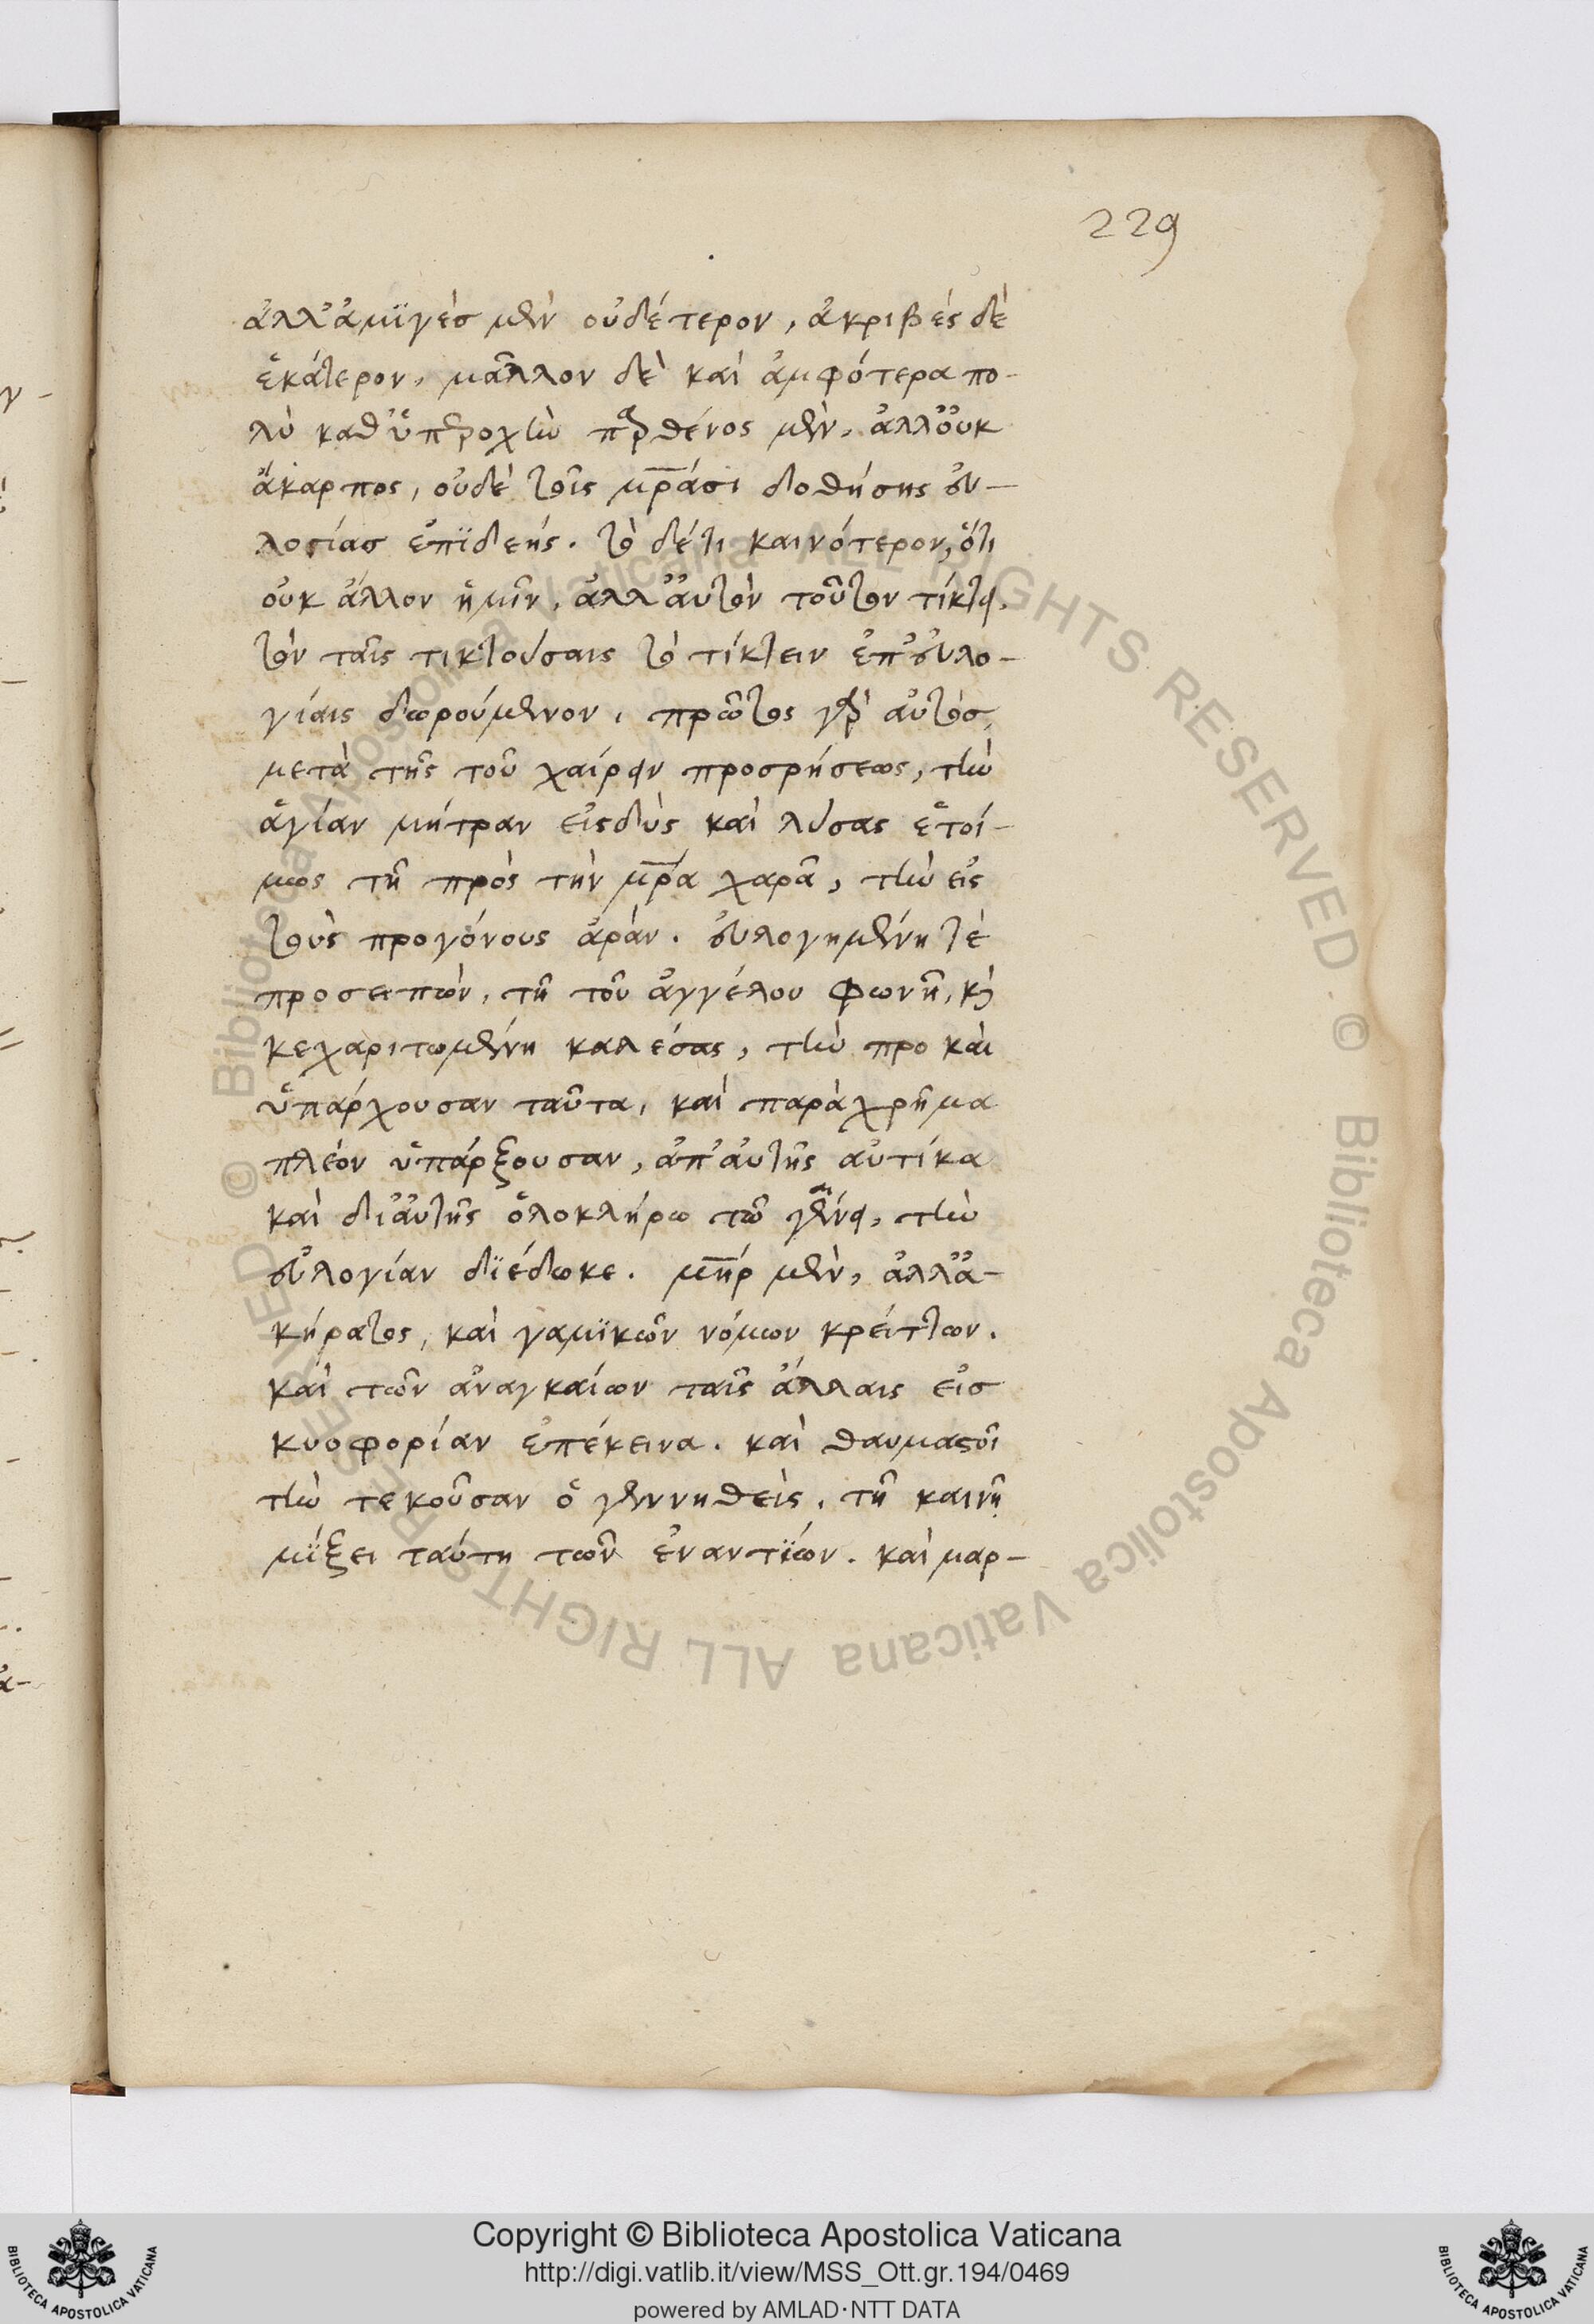 229
ἀλλ' ἀμϊγὲσ μὲν οὐδέτερον, ἀκριβὲς δὲ
ἑκάτερον, μᾶλλον δὲ καὶ ἀμφότερα πο-
λὺ καθ' ὑπεροχὴν παρθένος μὲν, ἀλλ' οὐκ
ἄκαρπος, οὐδὲ τοῖς μρ̅άσι δοθήσης εὐ-
λογίασ ἐπϊδεής. τὸ δέ τι καινότερον, ὅτι
οὐκ ἄλλον ἡμῖν, ἀλλ' αὐτὸν τοῦτον τίκτει,
τὸν ταῖς τικτούσαις τὸ τίκτειν ἐπ' εὐλο-
γίαις δωρούμενον, πρῶτος γὰρ αὐτὸσ,
μετὰ τῆς τοῦ χαίρειν προσρήσεως, τὴν
ἁγίαν μήτραν εἰσδὺς καὶ λύσας ἑτοί-
μως τῆ πρὸς τὴν μρ̅α χαρᾶ, τὴν εἰς
τοὺς προγόνους ἀράν. εὐλογημένη τὲ
προσειπὼν, τῆ τοῦ ἀγγέλου φωνῆ, καὶ
κεχαριτωμένη καλέσας, τὴν προ καὶ
ὑπάρχουσαν ταῦτα, καὶ παρὰχρῆμα
πλέον ὑπάρξουσαν, ἀπ' αὐτῆς αὐτίκα
καὶ δι' αὐτῆς ὁλοκλήρω τῶ γένει, τὴν
εὐλογίαν δϊέδωκε. μη̅ρ μὲν, ἀλλ' ἀ-
κήρατος, καὶ γαμϊκῶν νόμων κρείττων.
καὶ τῶν ἀναγκαίων ταῖς ἄλλαις εἰσ
κυοφορίαν ἐπέκεινα. καὶ θαυμαστοῖ
τὴν τεκοῦσαν ὁ γεννηθεὶς, τῆ καινῆ
μίξει ταύτη τῶν ἐναντϊων. καὶ μαρ-
Copyright © Biblioteca Apostolica Vaticana
http://digi.vatlib.it/view/MSS_Ott.gr.194/0469
powered by AMLAD·NTT DATA